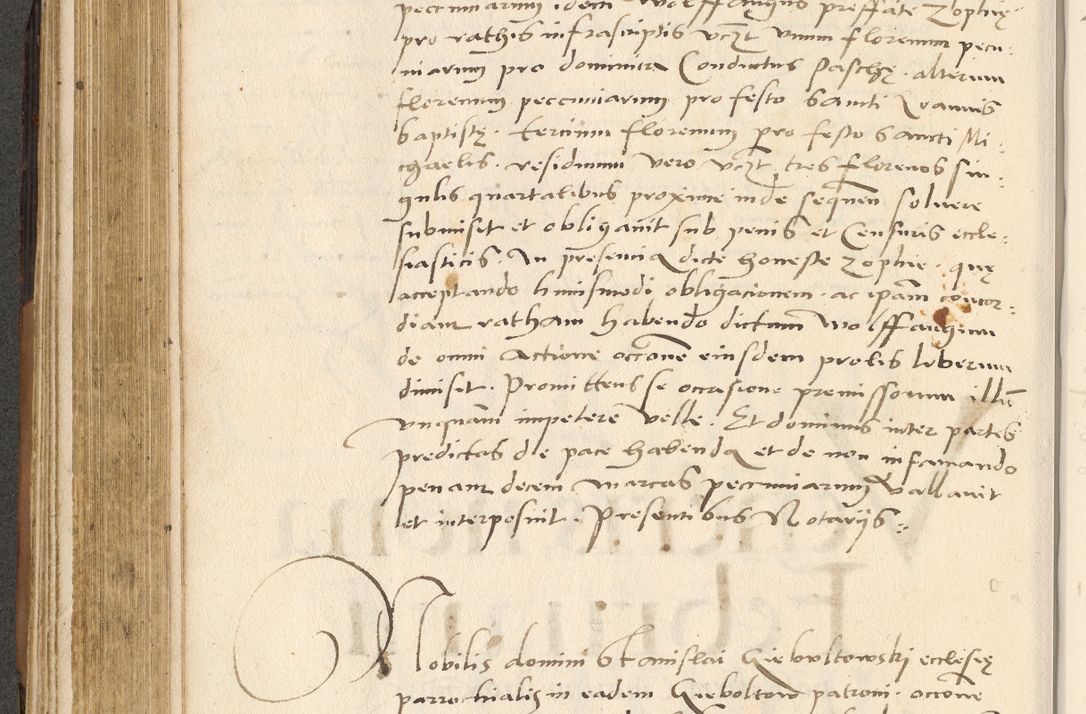 pecuniarum idem Wolffangus preffate Zophię
pro rathis infrascriptis vczt vnum florenum pecu-
niarum pro dominica Conductus Paschę. alterum
florenum pecuniarum pro festo Sancti Ioannis
baptistę. tercium florenum pro festo Sancti Mi-
chaelis. residuum vero vczt tres florenos sin-
gulis quartalibus proxime inde sequen soluere
submisit et obligauit sub penis et Censuris eccle-
siasticis. In presencia dicte honeste Zophie. quę
acceptando huiusmodi obligacionem. ac ipsam concor-
diam ratham habendo dictum Wolffangum
de omni Actione occone eiusdem prolis liberum
dimisit. Promittens se occasione premissorum illum
vnquam impetere velle. Et dominus inter partes
predictas de pace habenda et de non infamando
penam decem marcas pecuniarum vallauit
et interposuit. Presentibus Notarijs.
Nobilis domini Stanislai Gieboltowski ecclesię
parrochialis in eadem Gieboltow patroni. occone